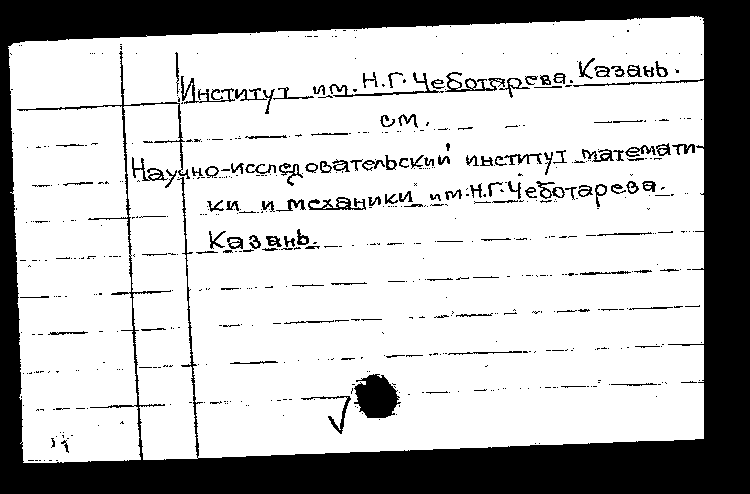 Институт им. Н.Г. Чеботарева. Казань.
см.
Научно-исследовательский институт математи-
ки и механики им. Н.Г. Чеботарева.
Казань.